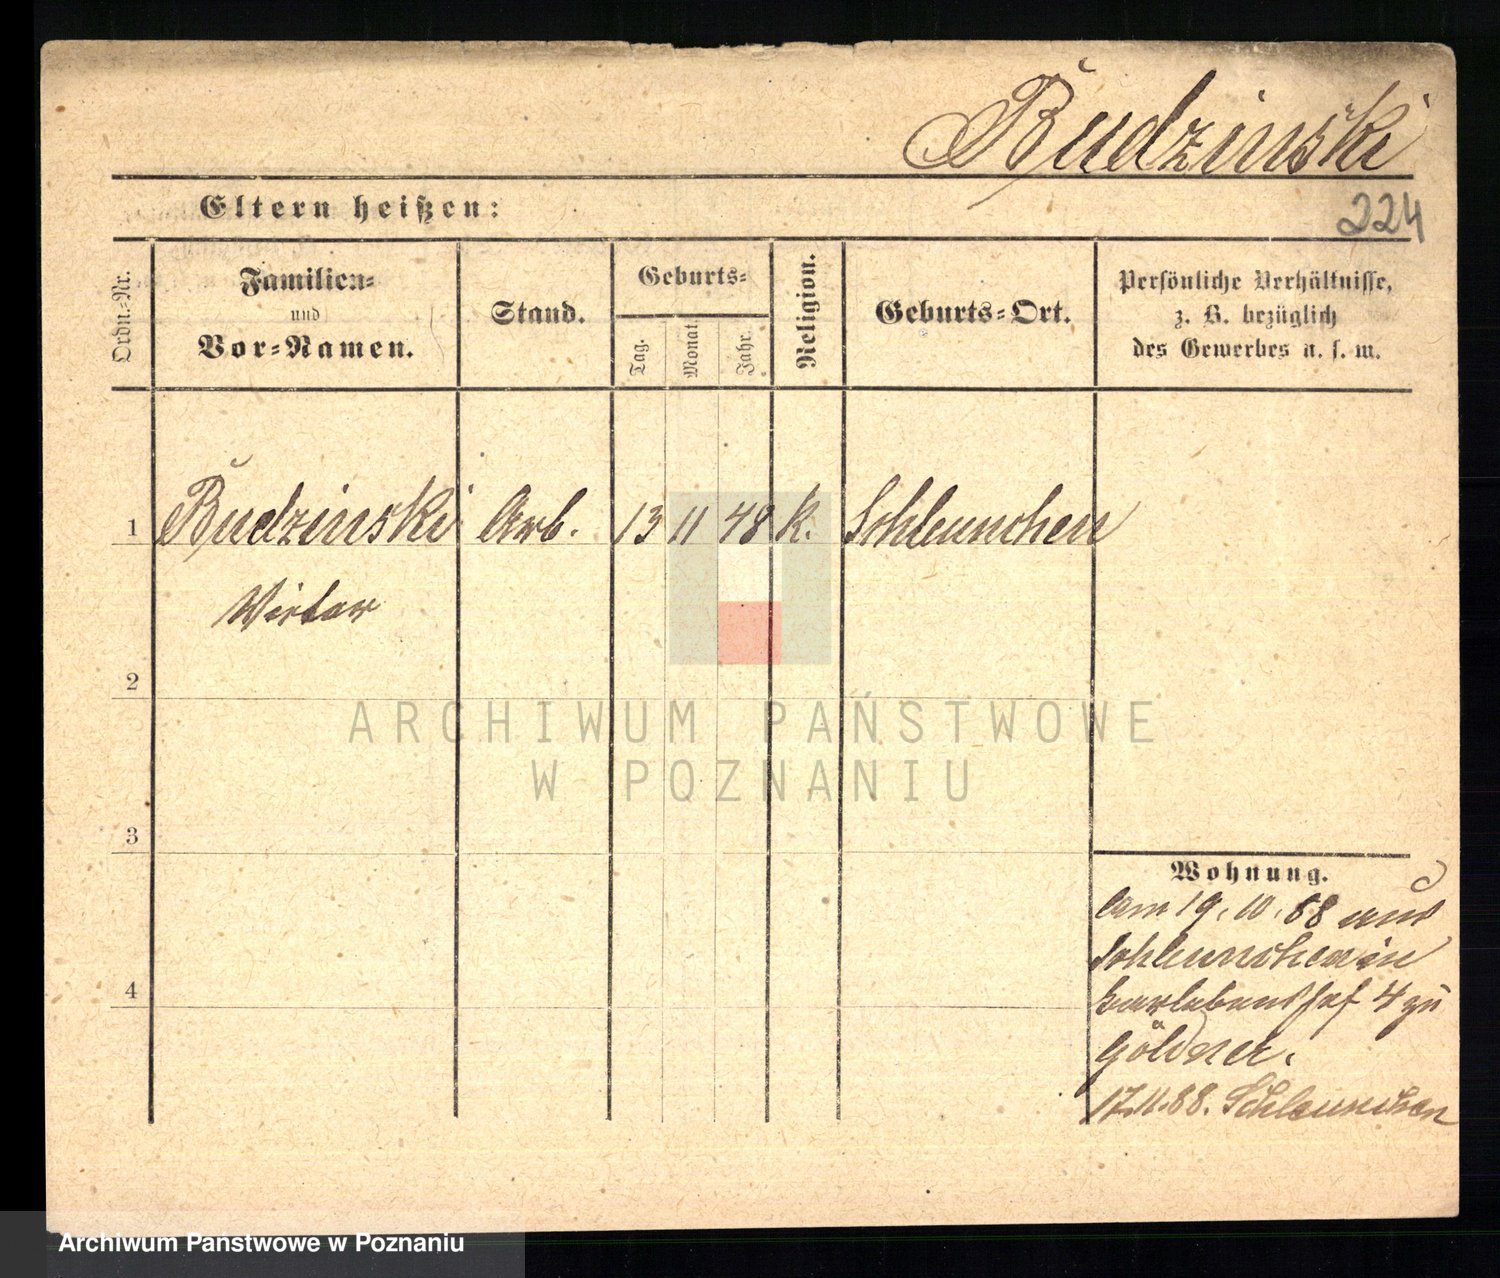 Budzinski
224
Eltern heißen:
Ordn.-Nr.
Familien-
und
Vor-Namen.
Stand.
Geburts-
Tag.
Monat.
Jahr.
Religion.
Geburts-Ort.
Persönliche Verhältnisse,
z. B. bezüglich
des Gewerbes u. s. w.
1 Budzinski Arb. 13 11 48 K. Schleunchen
2
3
4
Wohnung.
Am 19. 10. 88 aus
Schleunchen in
4 zu
Göldner.
17.11.88. Schleunchen
ARCHIWUM PAŃSTWOWE
W POZNANIU
Archiwum Państwowe w Poznaniu